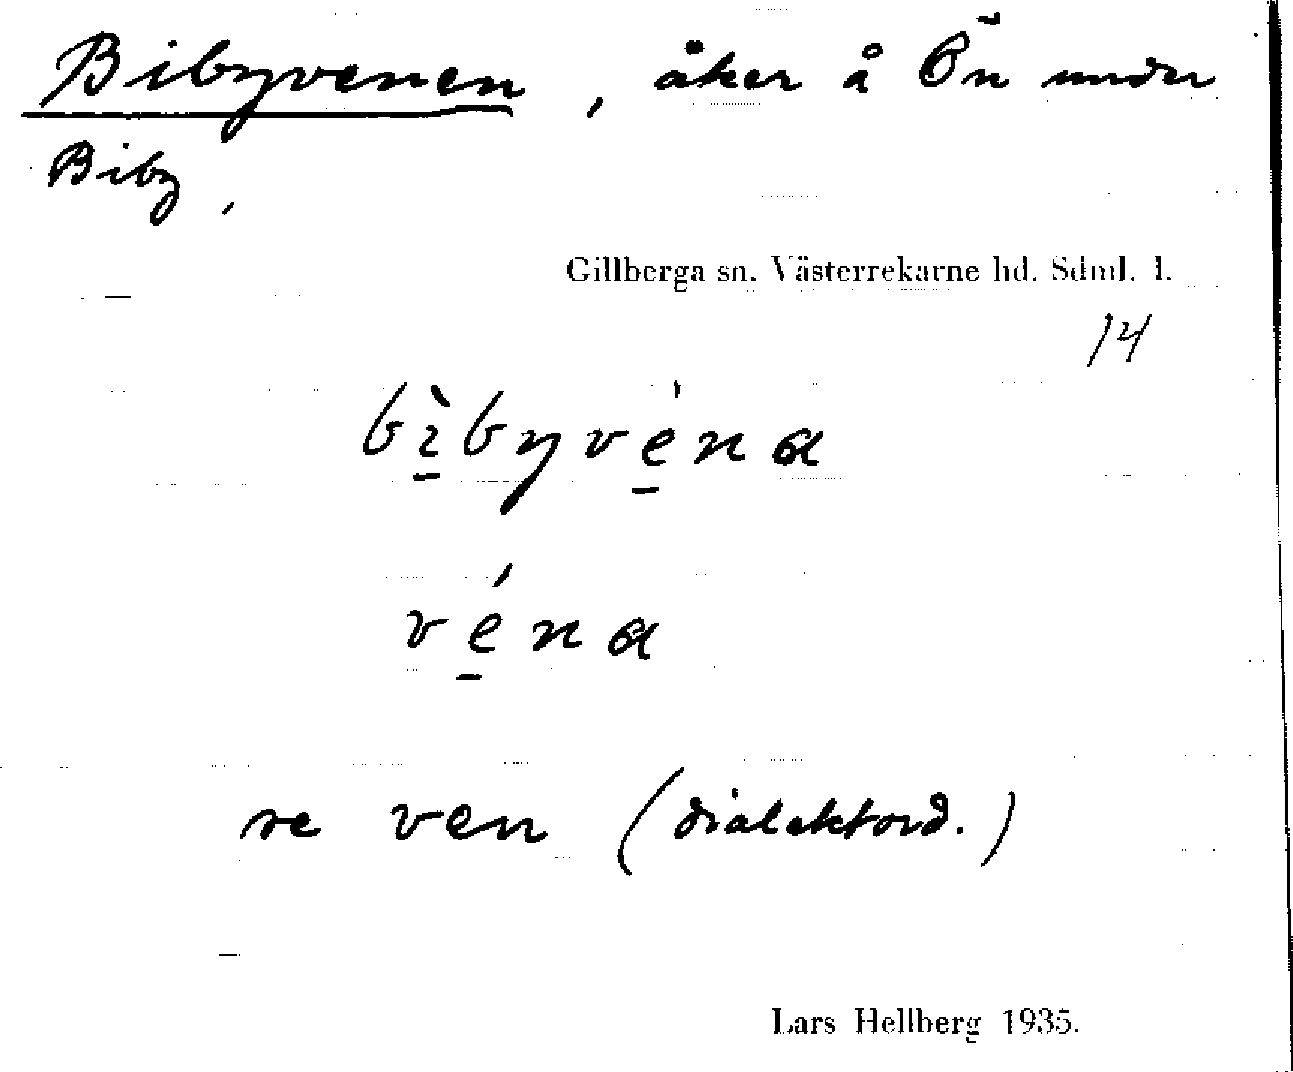 Bibyvenen, åker å Ön under
Biby,
Gillberga sn. Västerrekarne hd. Sdml. l.
14
bìbyvèna
véna
se ven (dialektord.)
Lars Hellberg 1935.